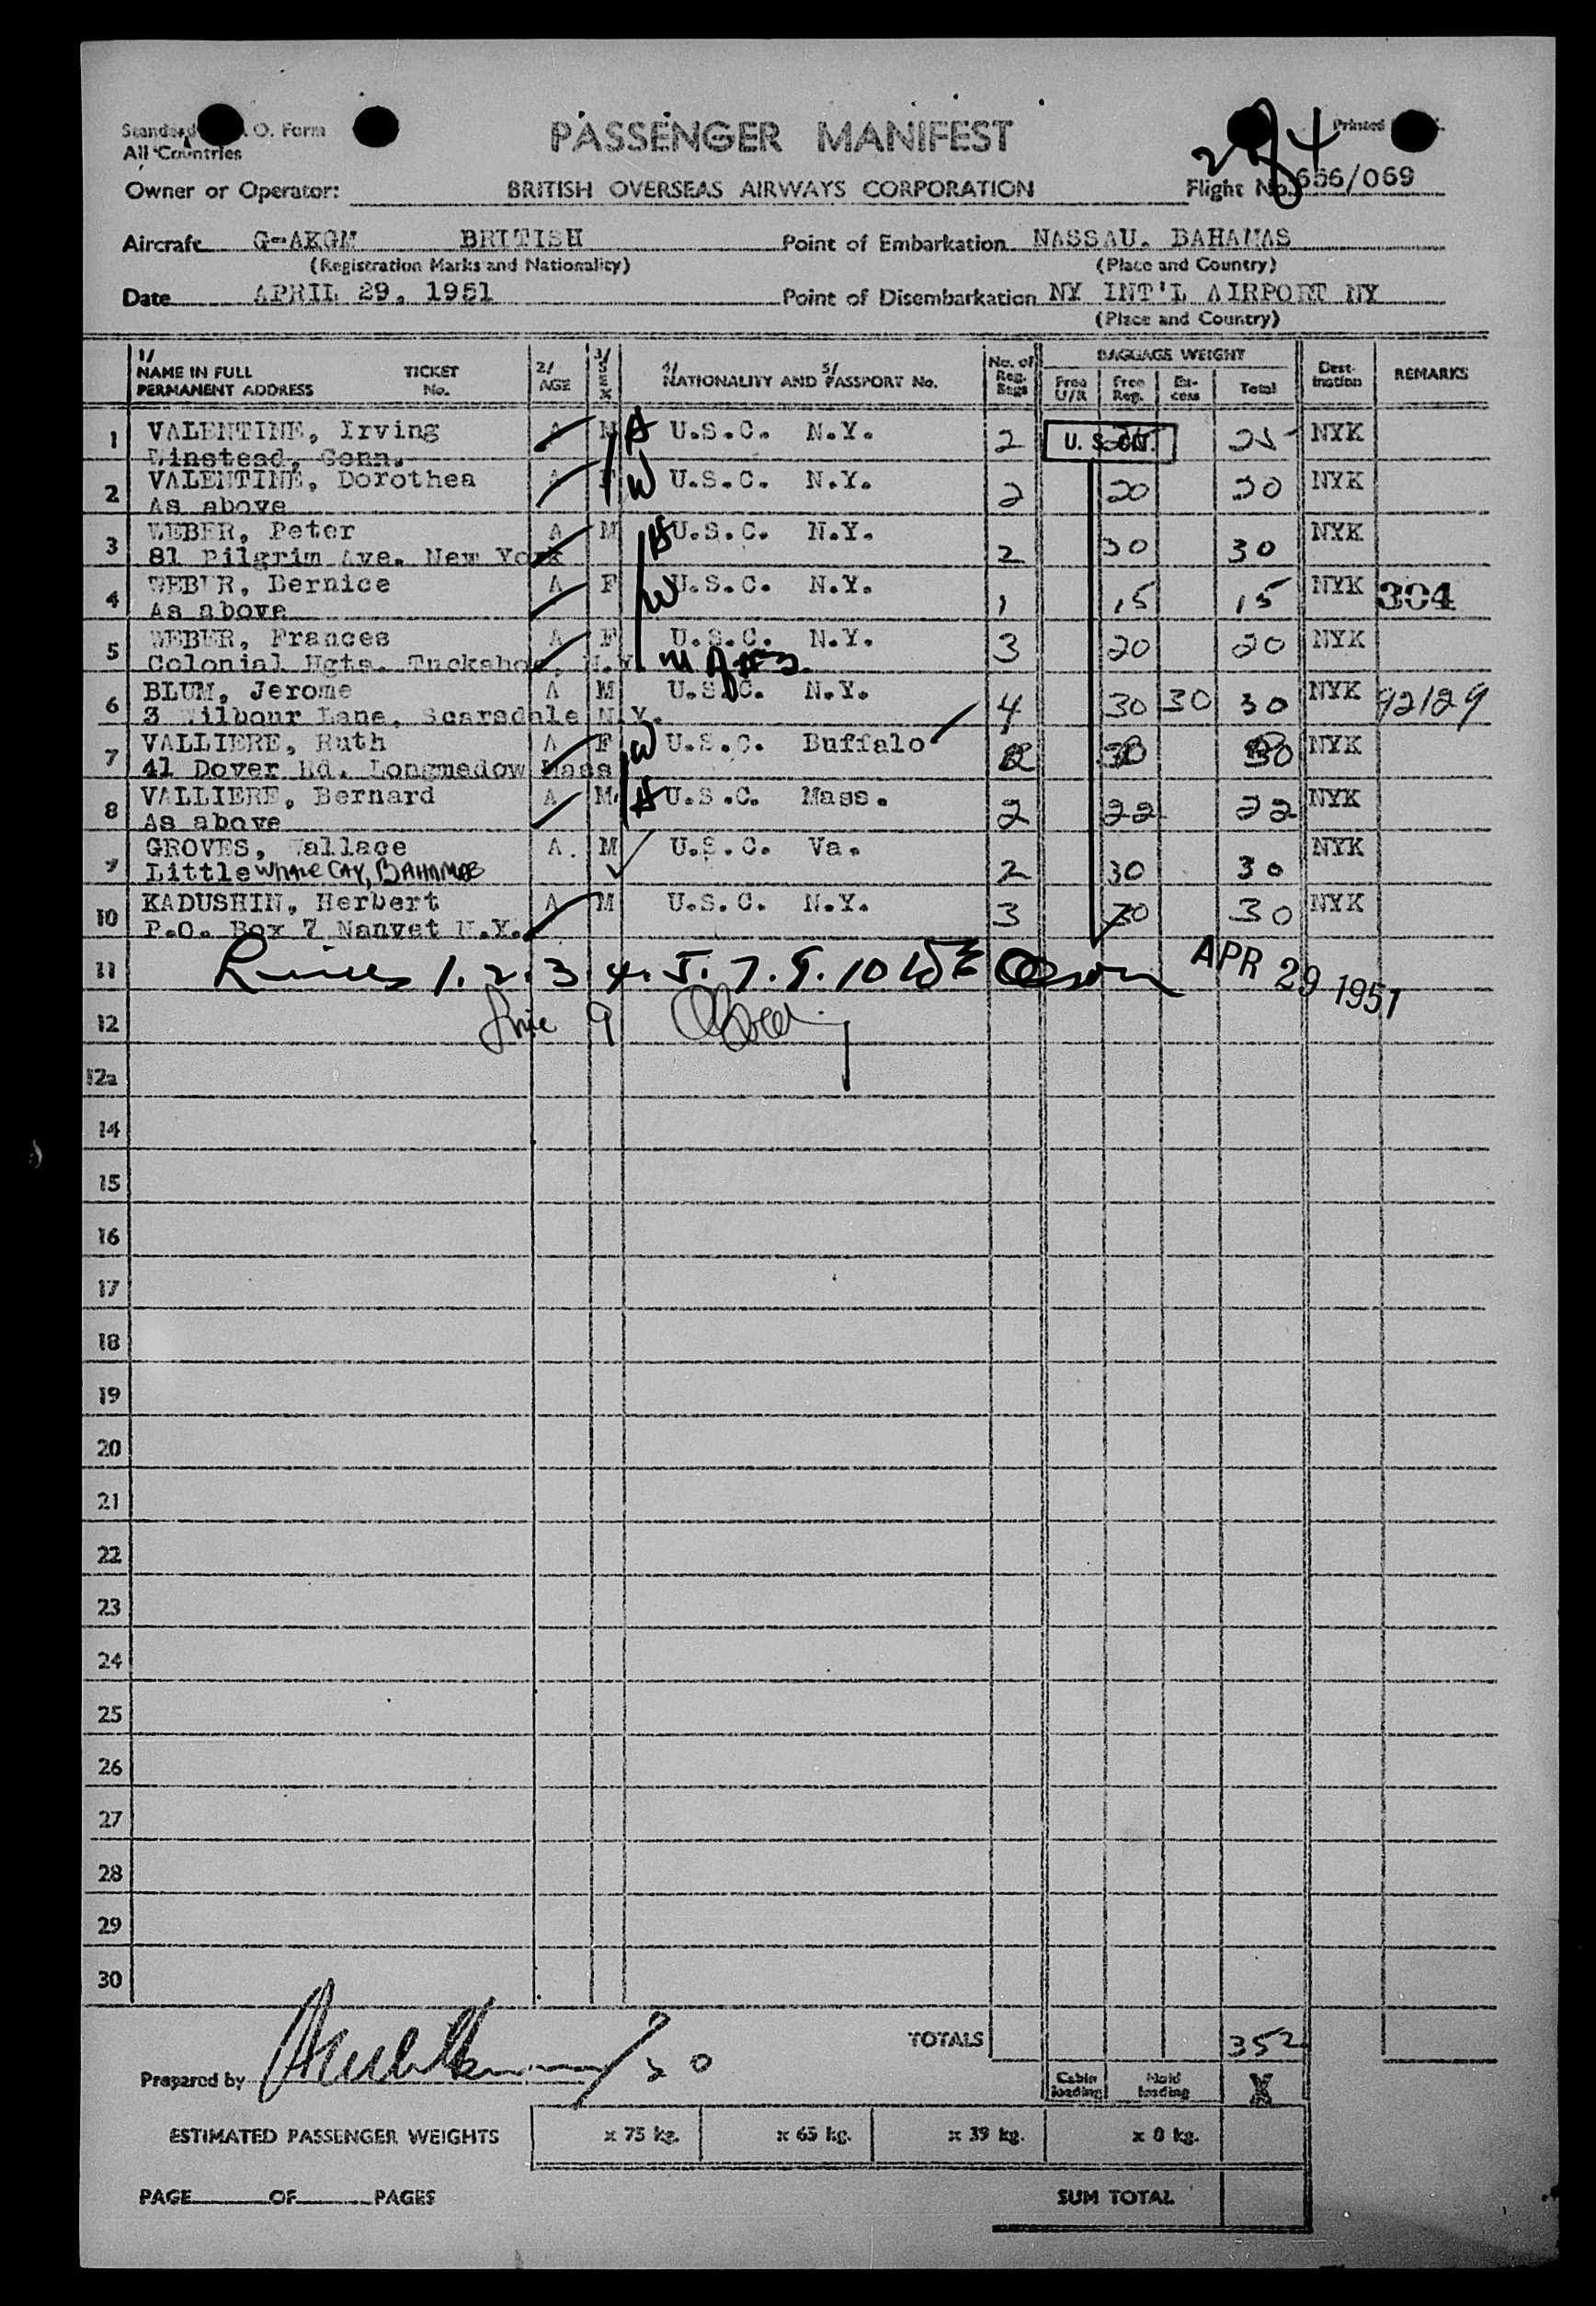 Standard O. Form
All Countries
PASSENGER MANIFEST
Printed
2 of 4
Owner or Operator: BRITISH OVERSEAS AIRWAYS CORPORATION Flight No. 656/069
Aircraft G-AKGM BRITISH Point of Embarkation NASSAU. BAHAMAS
(Registration Marks and Nationality) (Place and Country)
Date APRIL 29, 1951 Point of Disembarkation NY INT'L AIRPORT NY
(Place and Country)
1/ NAME IN FULL PERMANENT ADDRESS TICKET No. 2/ AGE 3/ SEX 4/ NATIONALITY AND 5/ PASSPORT No. No. of Reg. Bags BAGGAGE WEIGHT Free U/R Free Reg. Ex-cess Total Dest-ination REMARKS
1 VALENTINE, Irving A M H U.S.C. N.Y. 2 U. S. CIT. 25 25 NYK
Winstead, Conn.
2 VALENTINE, Dorothea A F W U.S.C. N.Y. 2 20 20 NYK
As above
3 WEBER, Peter A M H U.S.C. N.Y. 2 30 30 NYK
81 Pilgrim Ave. New York
4 WEBER, Bernice A F W U.S.C. N.Y. 1 15 15 NYK 304
As above
5 WEBER, Frances A F U.S.C. N.Y. 3 20 20 NYK
Colonial Hgts. Tuckahoe, N.Y. M of #3
6 BLUM, Jerome A M U.S.C. N.Y. 4 30 30 30 NYK 92129
3 Wilbour Lane, Scarsdale N.Y.
7 VALLIERE, Ruth A F W U.S.C. Buffalo 2 30 30 NYK
41 Dover Rd. Longmedow Mass
8 VALLIERE, Bernard A M H U.S.C. Mass. 2 22 22 NYK
As above
9 GROVES, Wallace A. M U.S.C. Va. 2 30 30 NYK
Little WHALE CAY, BAHAMAS
10 KADUSHIN, Herbert A M U.S.C. N.Y. 3 30 30 NYK
P.O. Box 7 Nanuet N.Y.
11 Lines 1. 2. 3. 4. 5. 7. 8. 10 Olson APR 29 1951
12 Line 9
12a
14
15
16
17
18
19
20
21
22
23
24
25
26
27
28
29
30
TOTALS 352
Prepared by
Cabin loading Hold loading
ESTIMATED PASSENGER WEIGHTS x 75 kg. x 65 kg. x 39 kg. x 8 kg.
PAGE OF PAGES SUM TOTAL